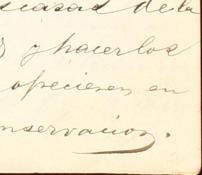 casas de la
y hacerlos
ofrecieren en
nservacion.